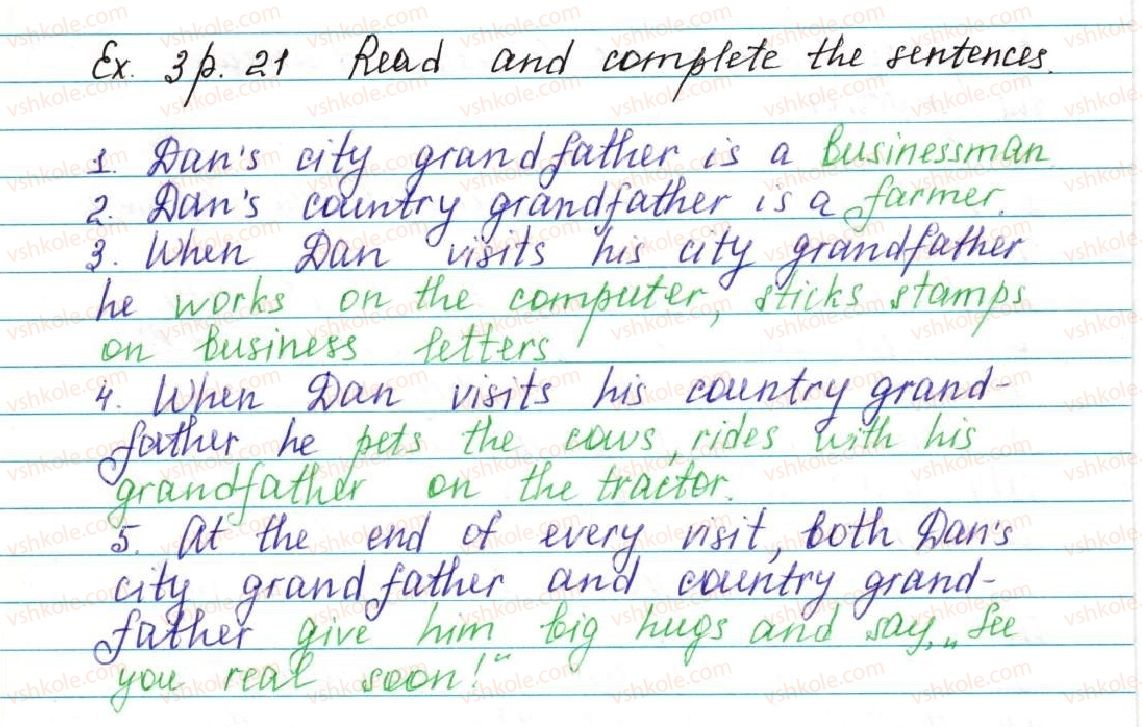 Ex. 3 p. 21 Read and complete the sentences.
1. Dan's city grandfather is a businessman
2. Dan's country grandfather is a farmer.
3. When Dan visits his city grandfather
he works on the computer, sticks stamps
on business letters
4. When Dan visits his country grand-
father he pets the cows, rides with his
grandfather on the tractor.
5. At the end of every visit, both Dan's
city grandfather and country grand-
father give him big hugs and say, „See
you real soon!“